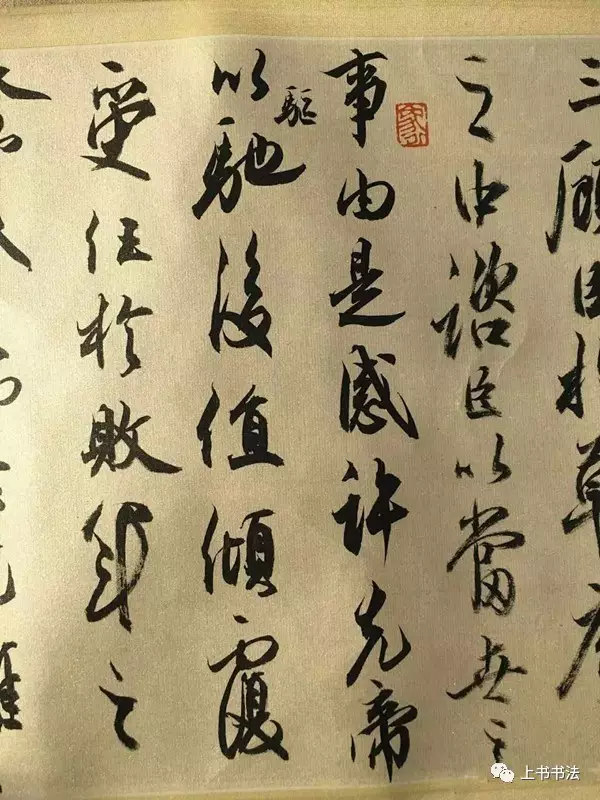 三顧臣於草廬
之中諮臣以當世之
事由是感許先帝
以驅馳後值傾覆
受任於敗軍之
上书书法